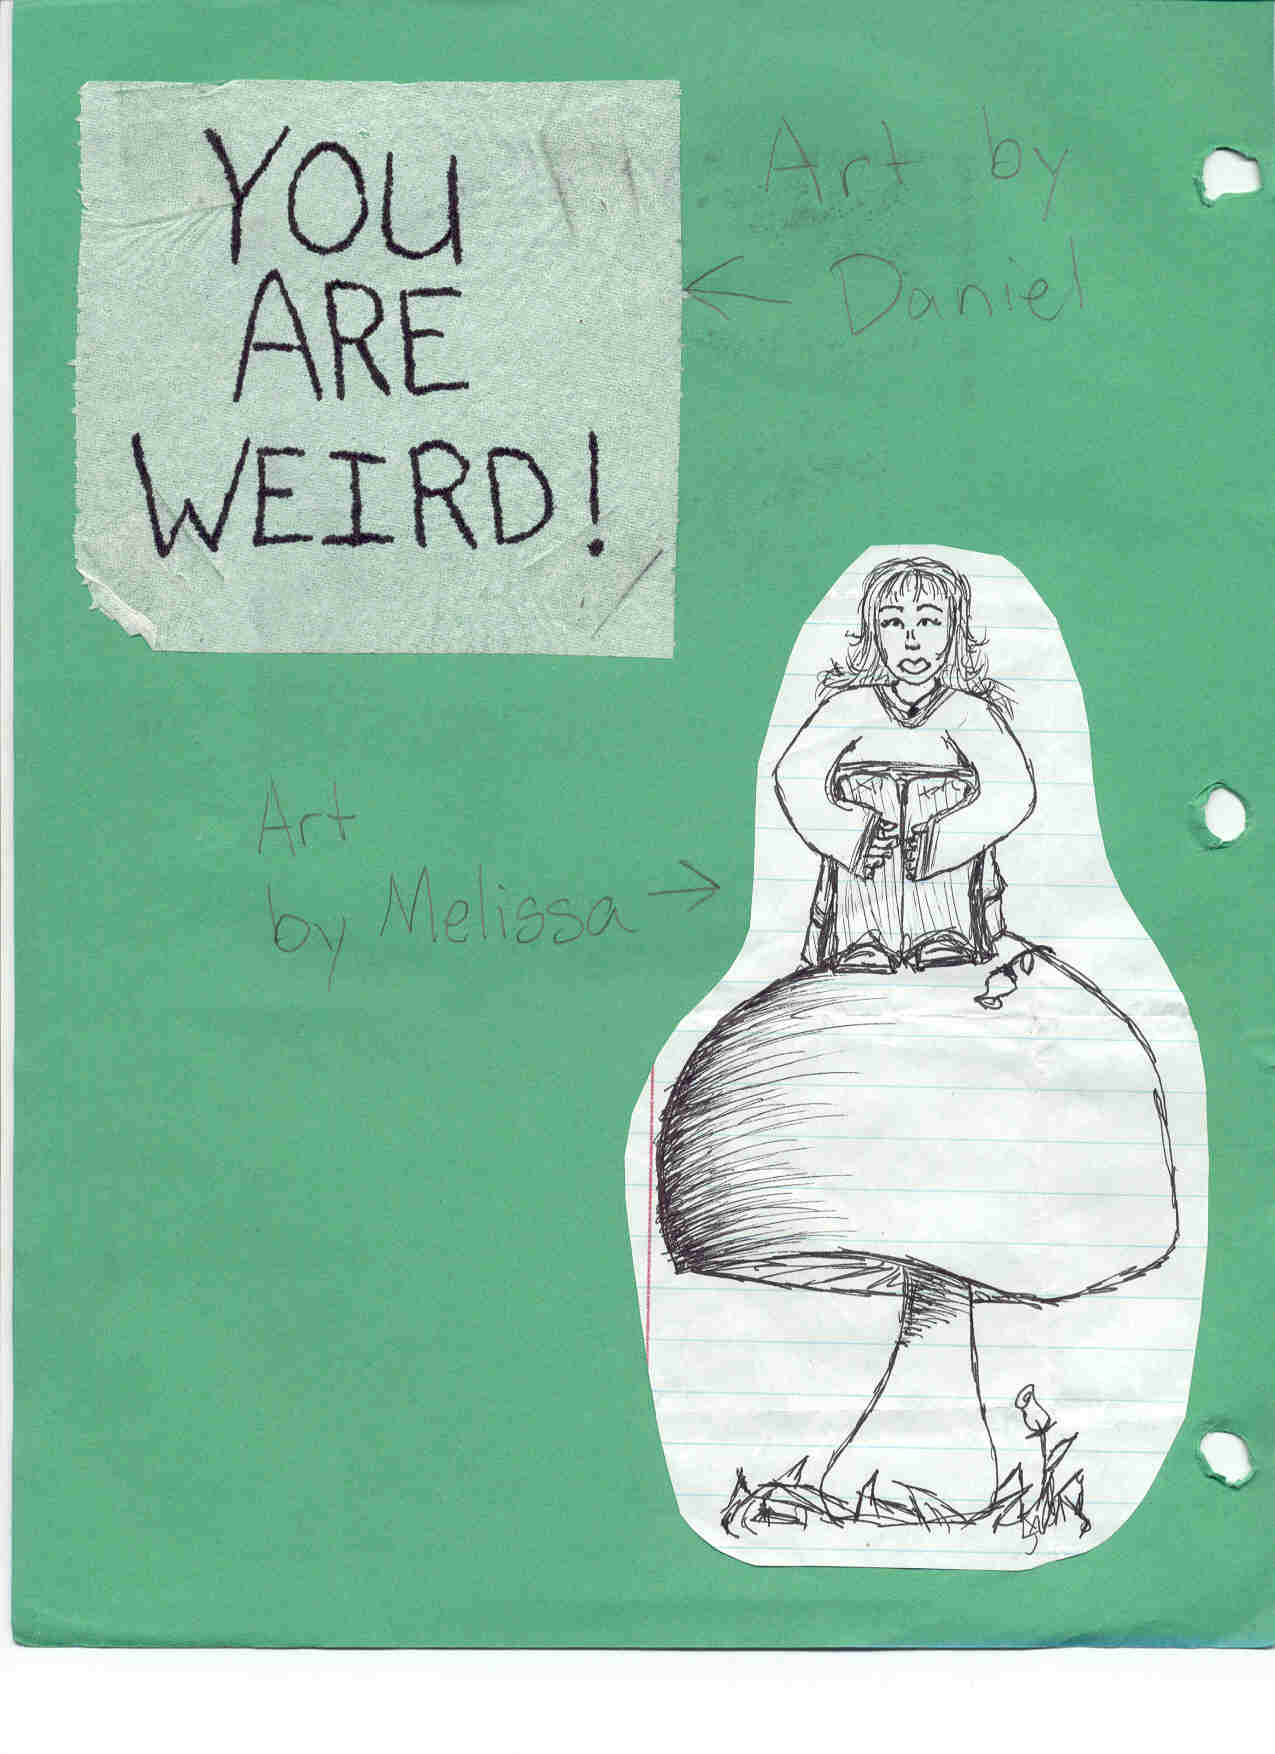 YOU
ARE
WEIRD!
Art by
Daniel
Art
by Melissa